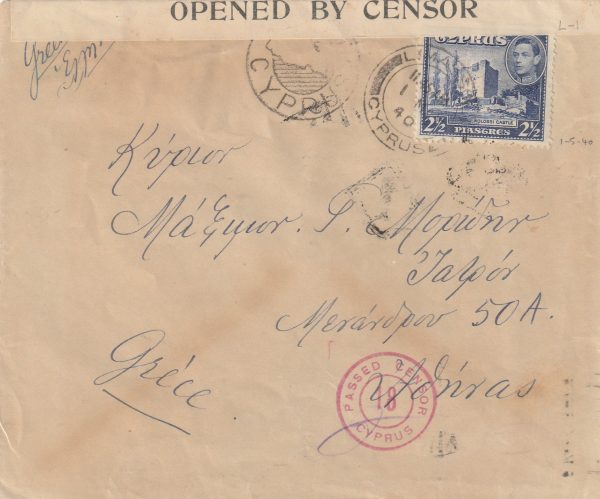 OPENED BY CENSOR
L-1
CYPRUS
CYPRUS
40
CYPRUS
KOLOSSI CASTLE
2½ PIASTRES 2½
1-5-40
Κύριον
Μάξιμον. Γ.
Ἰατρόν
Μενάνδρου 50 Α.
Ἀθήνας
Grèce
PASSED CENSOR
18
CYPRUS